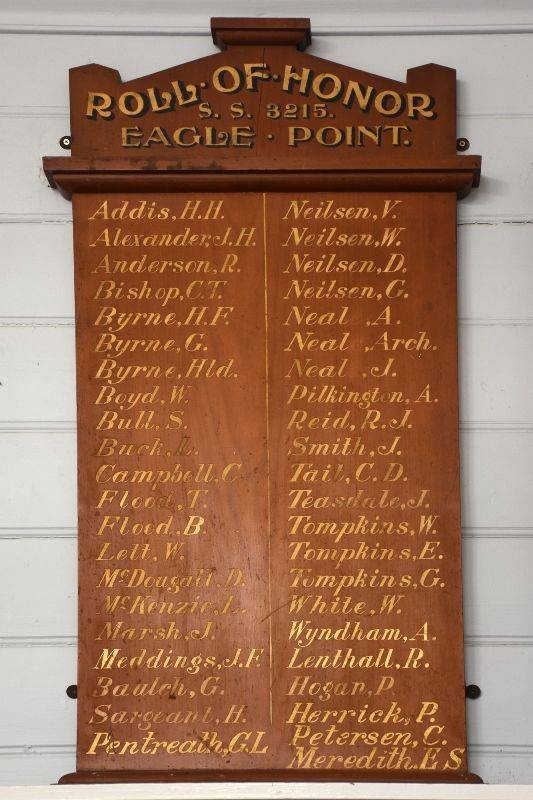 ROLL·OF·HONOR
S. S. 3215.
EAGLE · POINT.
Addis, H.H.
Alexander, J.H.
Anderson, R.
Bishop, C.T.
Byrne, H.F.
Byrne, G.
Byrne, Hld.
Boyd, W.
Bull, S.
Buck, L.
Campbell, C.
Flood, T.
Flood, B.
Lett, W.
McDougall, D.
McKenzie, L.
Marsh, J.
Meddings, J.F.
Baulch, G.
Sargeant, H.
Pentreath, G.L
Neilsen, V.
Neilsen, W.
Neilsen, D.
Neilsen, G.
Neal, A.
Neal, Arch.
Neal, J.
Pilkington, A.
Reid, R.J.
Smith, J.
Tait, C.D.
Teasdale, J.
Tompkins, W.
Tompkins, E.
Tompkins, G.
White, W.
Wyndham, A.
Lenthall, R.
Hogan, P.
Herrick, P.
Petersen, C.
Meredith, E S